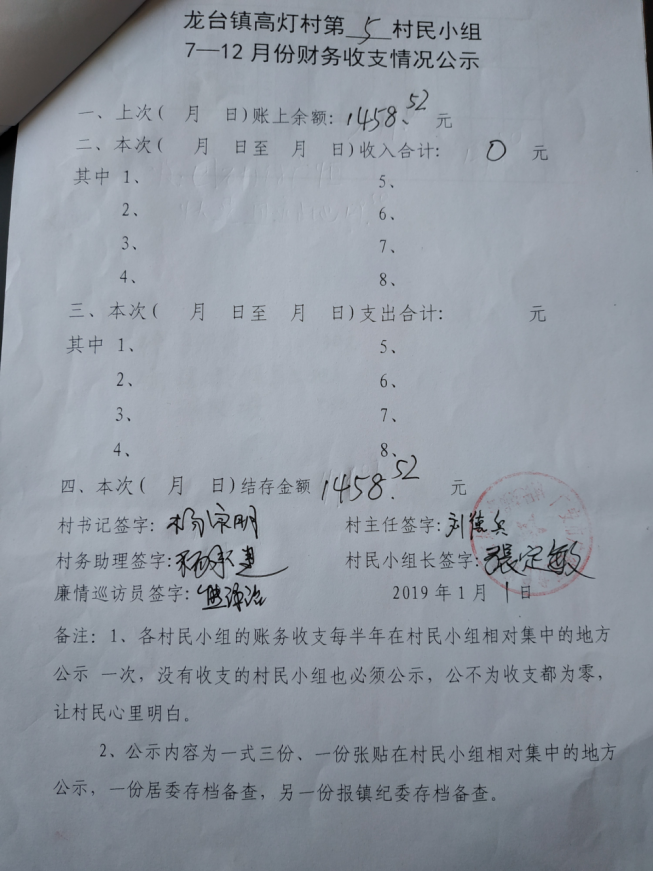 龙台镇高灯村第 5 村民小组
7—12 月份财务收支情况公示
一、上次( 月 日)账上余额: 1458.52 元
二、本次( 月 日至 月 日)收入合计: 0 元
其中 1、 5、
2、 6、
3、 7、
4、 8、
三、本次( 月 日至 月 日)支出合计: 元
其中 1、 5、
2、 6、
3、 7、
4、 8、
四、本次( 月 日)结存金额 1458.52 元
村书记签字: 村主任签字: 刘德兵
村务助理签字: 村民小组长签字: 張定敏
廉情巡访员签字: 2019 年 1 月 1 日
备注: 1、各村民小组的账务收支每半年在村民小组相对集中的地方
公示 一次，没有收支的村民小组也必须公示，公不为收支都为零，
让村民心里明白。
2、公示内容为一式三份、一份张贴在村民小组相对集中的地方
公示，一份居委存档备查，另一份报镇纪委存档备查。